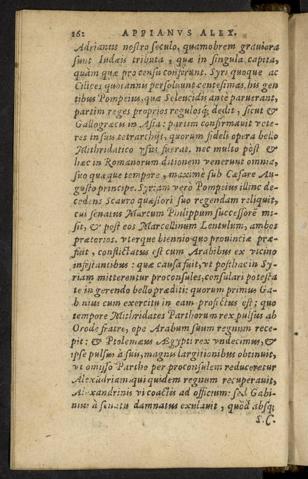 262 APPIANVS ALEX.
Adrianus nostro seculo, quamobrem grauiora
sunt Iudæis tributa, quæ in singula capita,
quàm quæ pro censu conferunt. Syri quoque ac
Cilices quotannis persoluunt centesimas. his gen
tibus Pompeius, quæ Seleucidis antè paruerant,
partim reges proprios regulosq; dedit, sicut &
Gallogræcis in Asia: partim confirmauit vete-
res in suis tetrarchijs, quorum fideli opera bello
Mithridatico vsus fuerat. nec multo pòst &
hæc in Romanorum ditionem venerunt omnia,
suo quæque tempore, maximè sub Cæsare Au-
gusto principe. Syriam verò Pompeius illinc de-
cedens Scauro quæstori suo regendam reliquit,
cui senatus Marcum Philippum successorē mi-
sit, & post eos Marcellinum Lentulum, ambos
prætorios. vterque biennio quo prouinciæ præ-
fuit, conflictatus est cum Arabibus ex vicino
infestantibus: quæ causa fuit, vt posthac in Sy-
riam mitterentur proconsules, consulari potesta
te in gerendo bello præditi: quorum primus Ga-
binius cum exercitu in eam profectus est: quo
tempore Mithridates Parthorum rex pulsus ab
Orode fratre, ope Arabum suum regnum rece-
pit: & Ptolemæus Ægypti rex vndecimus, &
ipse pulsus à suis, magnis largitionibus obtinuit,
vt omisso Partho per proconsulem reduceretur
Alexādriam: qui quidem regnum recuperauit,
Alexandrinis vi coactis ad officium: sed Gabi-
nius à senatu damnatus exulauit, quòd absq;
S.C.